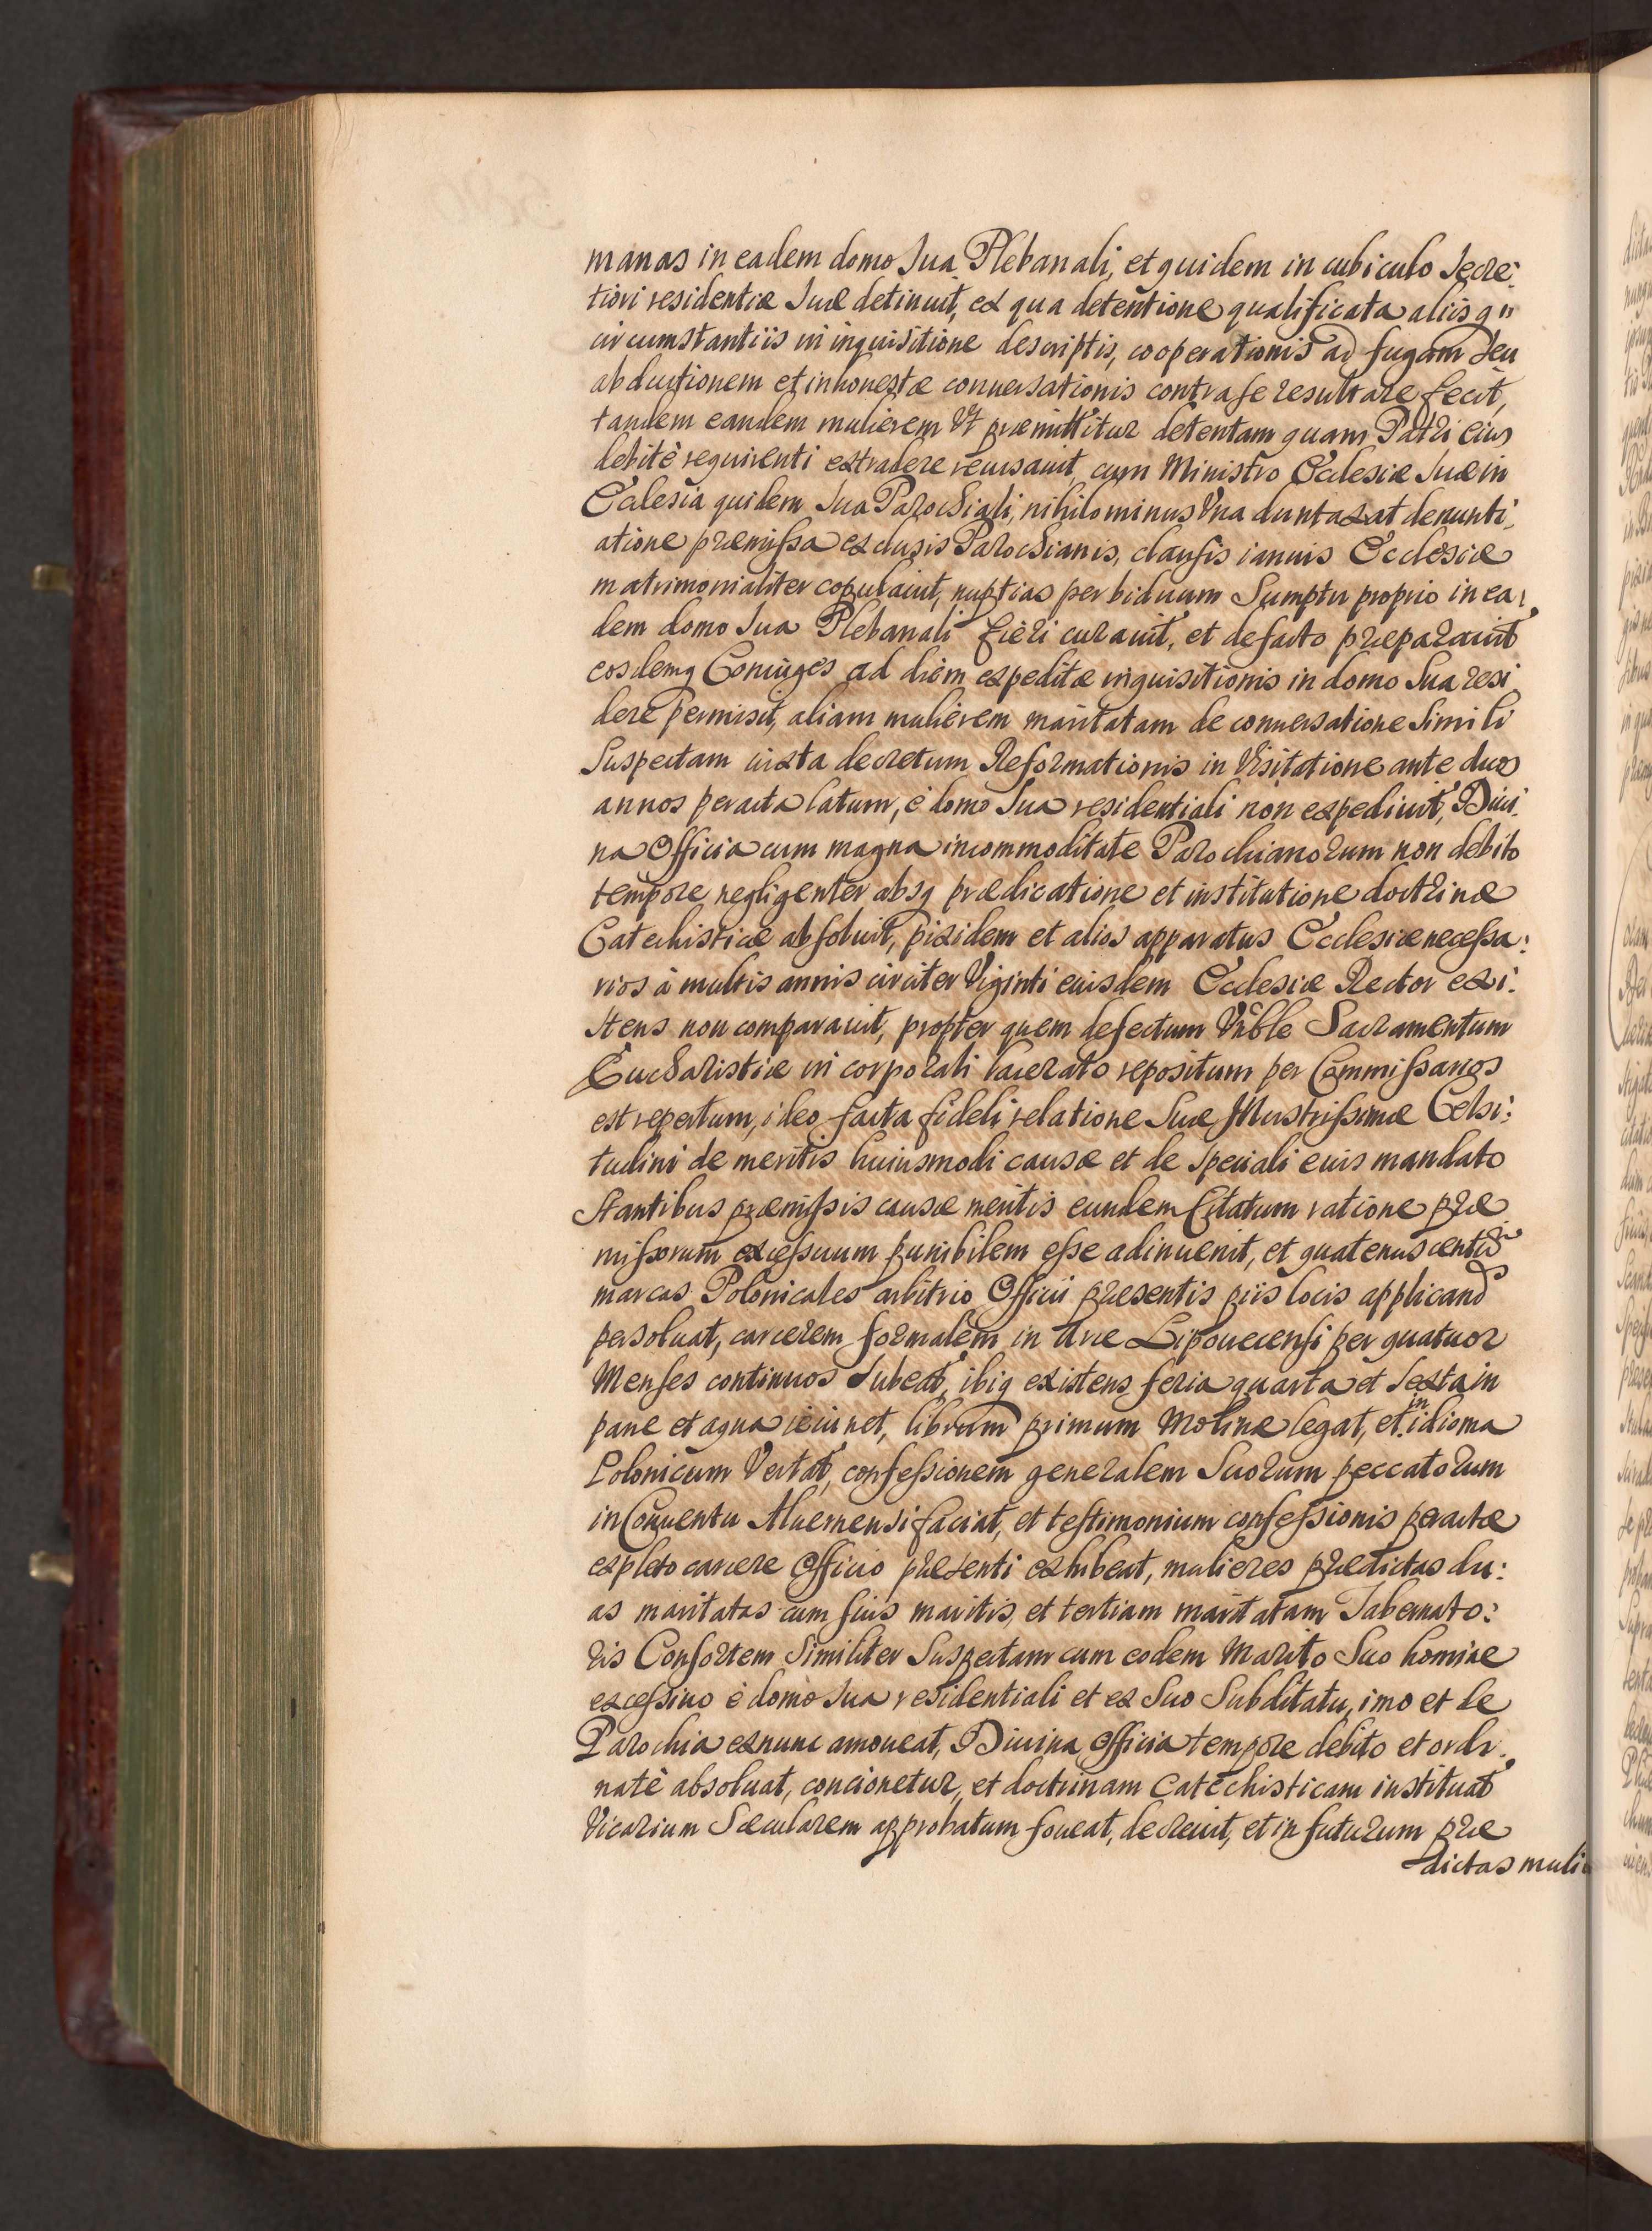 manas in eadem domo Sua Plebanali, et quidem in cubiculo Secre:
tiori residentiæ Suæ detinuit, ex qua detentione qualificata aliisq in
circumstantiis in inquisitione descriptis, cooperationis ad fugam Seu
abductionem et inhonestæ conuersationis contra se resultare fecit,
tandem eandem mulierem Vt præmittitur detentam quam Patri eius
debitè requirenti extradere recusauit, cum Ministro Ecclesiæ Suæ in
Ecclesia quidem Sua Parochiali, nihilominus Vna duntaxat denunti,
atione præmissa exclusis Parochianis, clausis ianuis Ecclesiæ
matrimonialiter copulauit, nuptias per biduum Sumptu proprio in ea,
dem domo Sua Plebanali fieri curauit, et defacto præparauit
eosdemq Coniuges ad diem expeditæ inquisitionis in domo Sua resi
dere permisit, aliam mulierem maritatam de conuersatione Simili
Suspectam iuxta decretum Reformationis in Visitatione ante duos
annos peracta latum, è domo Sua residentiali non expediuit, Diui:
na Officia cum magna incommoditate Parochianorum non debito
tempore negligenter absq prædicatione et institutione doctrinæ
Catechisticæ absoluit, pixidem et alios apparatus Ecclesiæ necessa:
rios à multis annis circiter Viginti eiusdem Ecclesiæ Rector exi:
stens non comparauit, propter quem defectum Vnble Sacramentum
Eucharistiæ in corporali lacerato repositum per Commissarios
est repertum, ideo facta fideli relatione Suæ Illustrissimæ Celsi:
tudini de meritis huiusmodi causæ et de Speciali eius mandato
Stantibus præmissis causæ meritis eundem Citatum ratione præ
missorum excessuum punibilem esse adinuenit, et quatenus centu
marcas Polonicales arbitrio Officii præsentis piis locis applicand
persoluat, carcerem formalem in Arce Lipouecensi per quatuor
Menses continuos Subeat, ibiq existens feria quarta et Sexta in
pane et aqua ieiunet, librum primum Molinæ legat, et in idioma
Polonicum Vertat, confessionem generalem Suorum peccatorum
in Conuentu Aluernensi faciat, et testimonium confessionis peractæ
expleto carcere Officio præsenti exhibeat, mulieres prædictas du:
as maritatas cum suis maritis, et tertiam maritatam Tabernato:
ris Consortem Similiter Suspectam cum eodem Marito Suo homine
excessiuo è domo Sua residentiali et ex Suo Subditatu, imo et de
Parochia exnunc amoueat, Diuina Officia tempore debito et ordi:
natè absoluat, concionetur, et doctrinam Catechisticam instituat
Vicarium Sæcularem approbatum foueat, decreuit, et in futurum præ
dictas muli